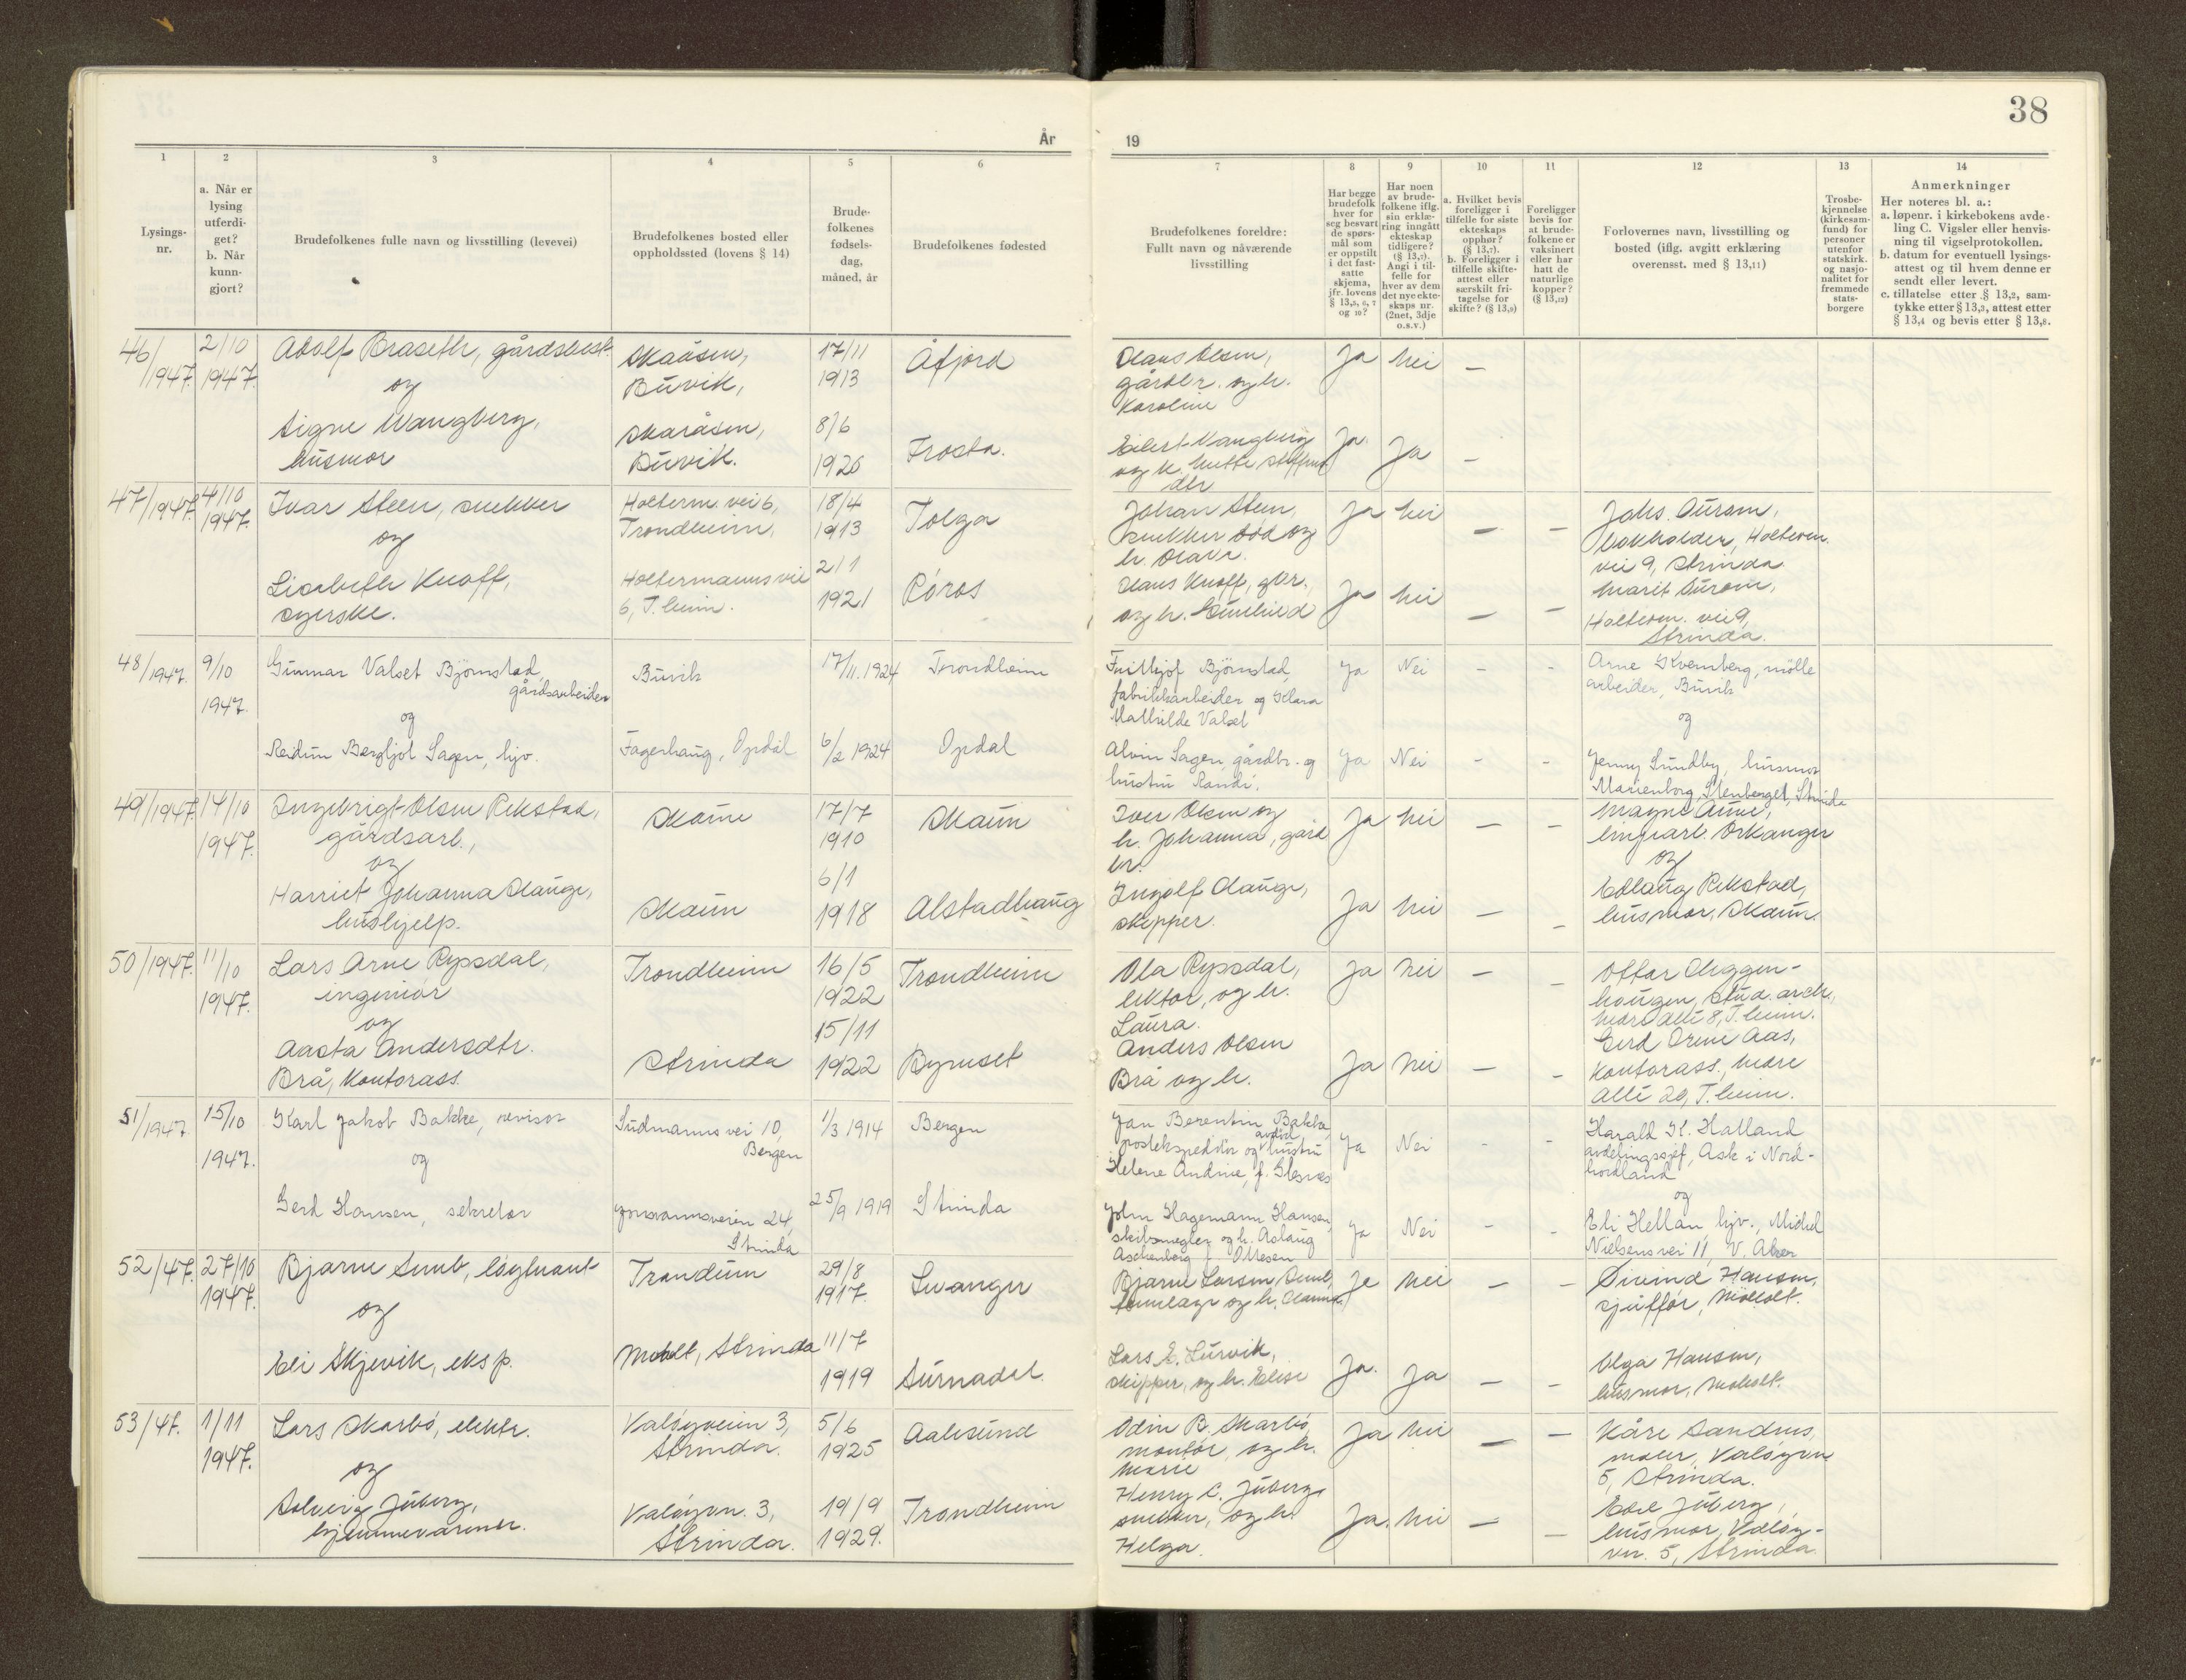 38
År
19
1
2
3
4
5
6
7
8
9
10
11
12
13
14
Lysings-
nr.
a. Når er
lysing
utferdi-
get?
b. Når
kunn-
gjort?
Brudefolkenes fulle navn og livsstilling (levevei)
Brudefolkenes bosted eller
oppholdssted (lovens § 14)
Brude-
folkenes
fødsels-
dag,
måned, år
Brudefolkenes fødested
Brudefolkenes foreldre:
Fullt navn og nåværende
livsstilling
Har begge
brudefolk
hver for
seg besvart
de spørs-
mål som
er oppstilt
i det fast-
satte
skjema,
jfr. lovens
§ 13,5, 6, 7
og 10?
Har noen
av brude-
folkene iflg.
sin erklæ-
ring inngått
ekteskap
tidligere?
(§ 13,7).
Angi i til-
felle for
hver av dem
det nye ekte-
skaps nr.
(2net, 3dje
o.s.v.)
a. Hvilket bevis
foreligger i
tilfelle for siste
ekteskaps
opphør?
(§ 13,7).
b. Foreligger i
tilfelle skifte-
attest eller
særskilt fri-
tagelse for
skifte? (§ 13,9)
Foreligger
bevis for
at brude-
folkene er
vaksinert
eller har
hatt de
naturlige
kopper?
(§ 13,12)
Forlovernes navn, livsstilling og
bosted (iflg. avgitt erklæring
overensst. med § 13,11)
Trosbe-
kjennelse
(kirkesam-
fund) for
personer
utenfor
statskirk.
og nasjo-
nalitet for
fremmede
stats-
borgere
Anmerkninger
Her noteres bl. a.:
a. løpenr. i kirkebokens avde-
ling C. Vigsler eller henvis-
ning til vigselprotokollen.
b. datum for eventuell lysings-
attest og til hvem denne er
sendt eller levert.
c. tillatelse etter § 13,2, sam-
tykke etter § 13,3, attest etter
§ 13,4 og bevis etter § 13,8.
46/1947. 2/10 1947.
Adolf Braseth, gårdsbest.
og
Signe Wangberg,
husmor
Skaåsen,
Buvik,
Skaråsen,
Buvik.
17/11
1913
8/6
1920
Åfjord
Frosta.
Olaus Olsen,
gårdbr. og h.
Karoline
Eilert Vangberg
og h.
dtr
Ja nei —
Ja Ja —
47/1947. 4/10 1947.
Ivar Steen, snekker
og
Lisabeth Knoff,
syerske.
Holterm. vei 6,
Trondheim,
Holtermanns vei
6, T.heim.
18/4
1913
2/1
1921
Tolga
Röros
Johan Steen,
snekker död og
h. Olava.
Claus Knoff, gbr.,
og h. Gunhild
Ja nei — —
Ja nei — —
Johs. Aursen,
bokholder, Holterm.
vei 9, Strinda
Marit Aursen,
Holterm. vei 9,
Strinda.
48/1947. 9/10 1947.
Gunnar Valset Björnstad,
gårdsarbeider
og
Reidun Bergljot Sagen, hjv.
Buvik
Fagerhaug, Opdal
17/11. 1924
6/2 1924
Trondheim
Opdal
Fritjof Björnstad,
fabrikkarbeider og Klara
Mathilde Valset
Alvin Sagen, gårdbr. og
hustru Randi.
Ja Nei - -
Ja Nei - -
Arne Kvernberg, mölle
arbeider, Buvik
og
Jenny Sundby, husmor
Marienborg, Stenberget, Strinda
49/1947. 14/10 1947.
Ingebrigt Olsen Rekstad,
gårdsarb.,
og
Harriet Johanna Hauge,
hushjelp.
Skaun
Skaun
17/7
1910
6/1
1918
Skaun
Alstadhaug
Iver Olsen og
h. Johanna, gård
br.
Ingolf Hauge,
skipper.
Ja nei — —
Ja nei — —
Magne Aune,
Orkanger
og
Edlaug Rekstad,
husmor, Skaun.
50/1947. 11/10 1947.
Lars Arne Rypsdal,
ingeniör
og
Aasta Andersdtr.
Brå, kontorass.
Trondheim
Strinda
16/5
1922
15/11
1922
Trondheim
Byneset
Ola Rypsdal,
lektor, og h.
Laura.
Anders Olsen
Brå og h.
Ja nei — —
Ja nei — —
Ottar
haugen, stud. arch.,
Gerd Irene Aas,
kontorass., nedre
allé 20, T.heim.
51/1947. 15/10 1947.
Karl Jakob Bakke, revisor
og
Gerd Hansen, sekretær
Sudmanns vei 10,
Bergen
Jonsvannsveien 24,
Strinda
1/3 1914
25/9 1919
Bergen
Strinda
Jan Berentin Bakke,
postekspeditör og avdöd hustru
Helene Andrine, f. Glesnes
John Hagemann Hansen
skibsmegler og h. Aslaug
Aschenberg f. Ottesen
Ja Nei - -
Ja Nei - -
Harald K. Hatland
avdelingssjef, Ask i Nord-
hordland
og
Eli Hellan, hjv., Michel
Nielsens vei 11, V. Aker
52/47. 27/10 1947.
Bjarne Sunb, löytnant
og
Eli Skjevik, eksp.
Trondheim
Moholt, Strinda
29/8
1917.
11/7
1919
Levanger
Surnadal.
Bjarne Larsen
og h.
Lars E. Lurvik,
skipper, og h. Elise
Ja nei — —
Ja. Ja — —
Øivind Hansen,
sjåför, Moholt.
Olga Hansen,
husmor, Moholt.
53/47. 1/11 1947.
Lars Skarbö, elektr.
og
Solveig Juberg,
hjemmeværende.
Valöyveien 3,
Strinda.
Valöyvn. 3,
Strinda.
5/6
1925
19/9
1929.
Aalesund
Trondheim
Odin B. Skarbö,
montör, og h.
Marie
Henry C. Juberg,
snekker, og h.
Helga.
Ja nei — —
Ja. nei — —
Kåre Sandnes,
maler, Valöyvn
5, Strinda.
Edel Juberg,
husmor, Valöy-
vn. 5, Strinda.